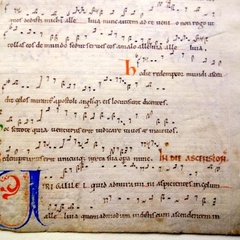 alle luia nunc autem ad te uenio non rogo ut
tollas eos de mundo sed ut serues eos a malo alleluia alle luia.
hodie redemptor mundi ascen
dit celos mirantur apostoli angeliq; eis locuti sunt dicentes
quia uenturus est iudicare uiuos et mortuos
sua opa nunc. IN DIE ASCENSION
IRI GALILE I. quid admiramini aspicientes in celum
alle luia quemadmodum uidistis eum ascendentem in